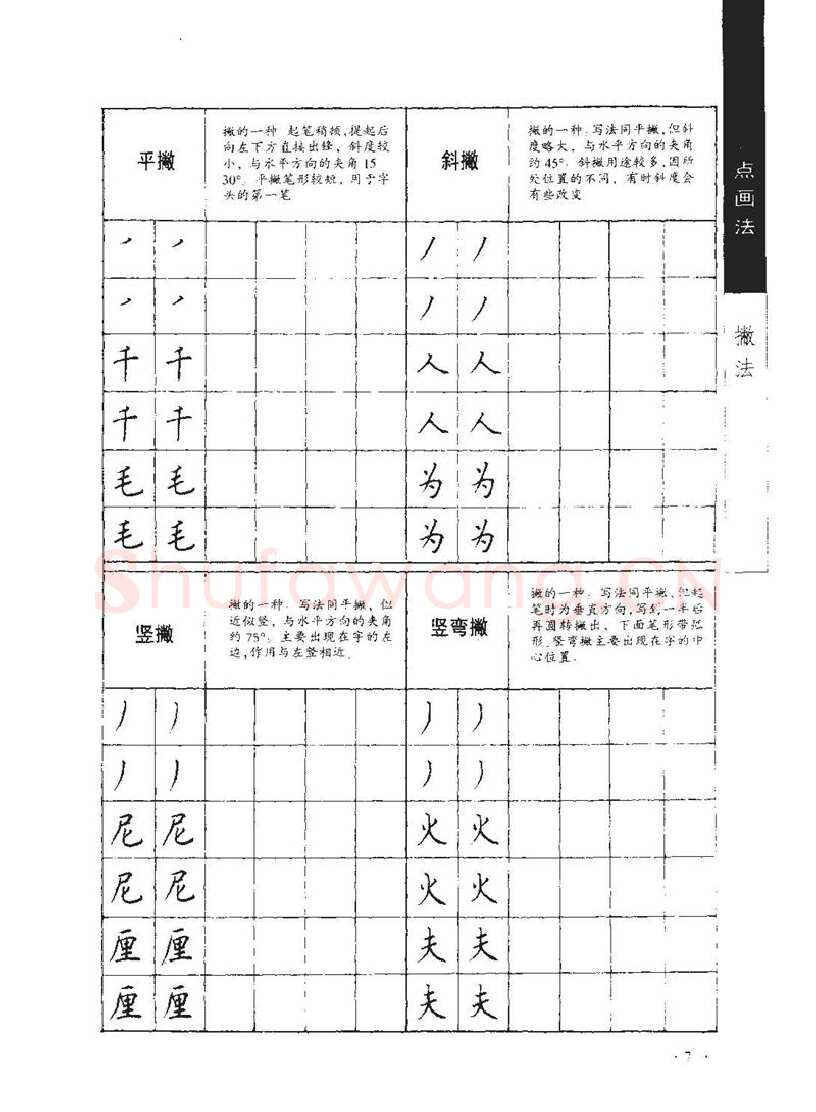 点画法
撇法
平撇
撇的一种 起笔稍顿,提起后
向左下方直接出锋, 斜度较
小, 与水平方向的夹角 15
30° 平撇笔形较短, 用于字
头的第一笔
斜撇
撇的一种, 写法同平撇,但斜
度略大, 与水平方向的夹角
约 45°. 斜撇用途较多,因所
处位置的不同, 有时斜度会
有些改变
丿 丿
丿 丿
千 千
千 千
毛 毛
毛 毛
丿 丿
丿 丿
人 人
人 人
为 为
为 为
Shufawang.CN
竖撇
撇的一种, 写法同平撇, 似
近似竖, 与水平方向的夹角
约 75°, 主要出现在字的左
边,作用与左竖相近.
竖弯撇
撇的一种, 写法同平撇,但起
笔时为垂直方向,写到一半后
再圆转撇出, 下面笔形带弧
形.竖弯撇主要出现在字的中
心位置.
丿 丿
丿 丿
尼 尼
尼 尼
厘 厘
厘 厘
丿 丿
丿 丿
火 火
火 火
夫 夫
夫 夫
· 7 ·